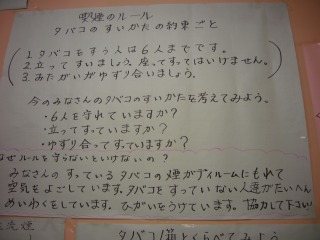 喫煙のルール
タバコのすいかたの約束ごと
1. タバコをすう人は6人までです。
2. 立ってすいましょう。座ってすってはいけません。
3. おたがいがゆずり合いましょう。
今のみなさんのタバコのすいかたを考えてみよう。
・6人を守れていますか?
・立ってすっていますか?
・ゆずり合ってすっていますか?
なぜルールを守らないといけないの?
みなさんのすっているタバコの煙がデイルームにもれて
空気をよごしています。タバコをすっていない人達がたいへん
めいわくをしています。ひがいをうけています。協力して下さい!
タバコ1箱とくらべてみよう